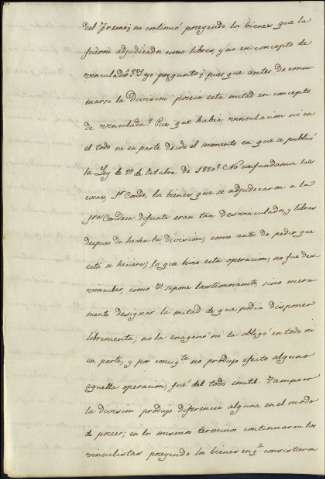 del Gremio; ni continuó poseyendo los bienes que la
fueron adjudicados como libres, y no en concepto de
vinculados. Y yo pregunto ¿pues que antes de consu-
marse la division poseia esta mitad en concepto
de vinculada? ¿Pues que habia vinculacion ni en
el todo ni en parte desde el momento en que se publicó
la Ley de 11 de Octubre de 1820? No confundamos las
cosas, Sr. Conde, los bienes que se adjudicaron a la
Sra. Condesa difunta eran tan desvinculados y libres
despues de hecha la division, como antes de pedir que
esta se hiciere; lo que hizo esta operacion, no fue des-
vincular, como V. supone, sino mera-
mente designar la mitad de que podia disponer
libremente; no la enagenó ni la obligó en todo ni
en parte, y por consigte. no produjo efecto alguno
aquella operacion, fué del todo inutil. Tampoco
la division produjo diferencia alguna en el modo
de poseer; en los mismos terminos continuaron los
vinculistas poseyendo los bienes en qe. consistiera